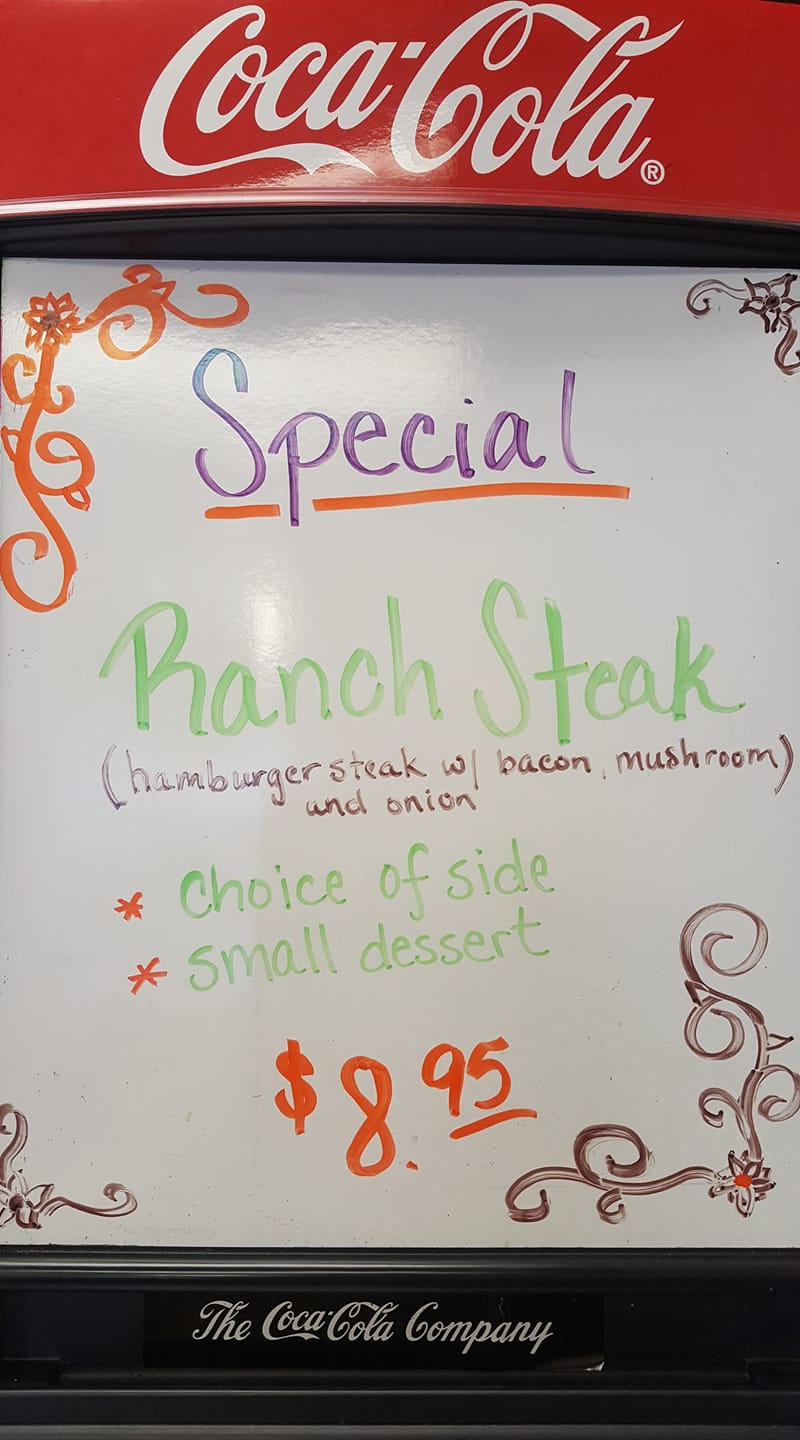 Coca-Cola®
Special
Ranch Steak
(hamburger steak w/ bacon, mushroom)
and onion
* choice of side
* small dessert
$8.95
The Coca-Cola Company